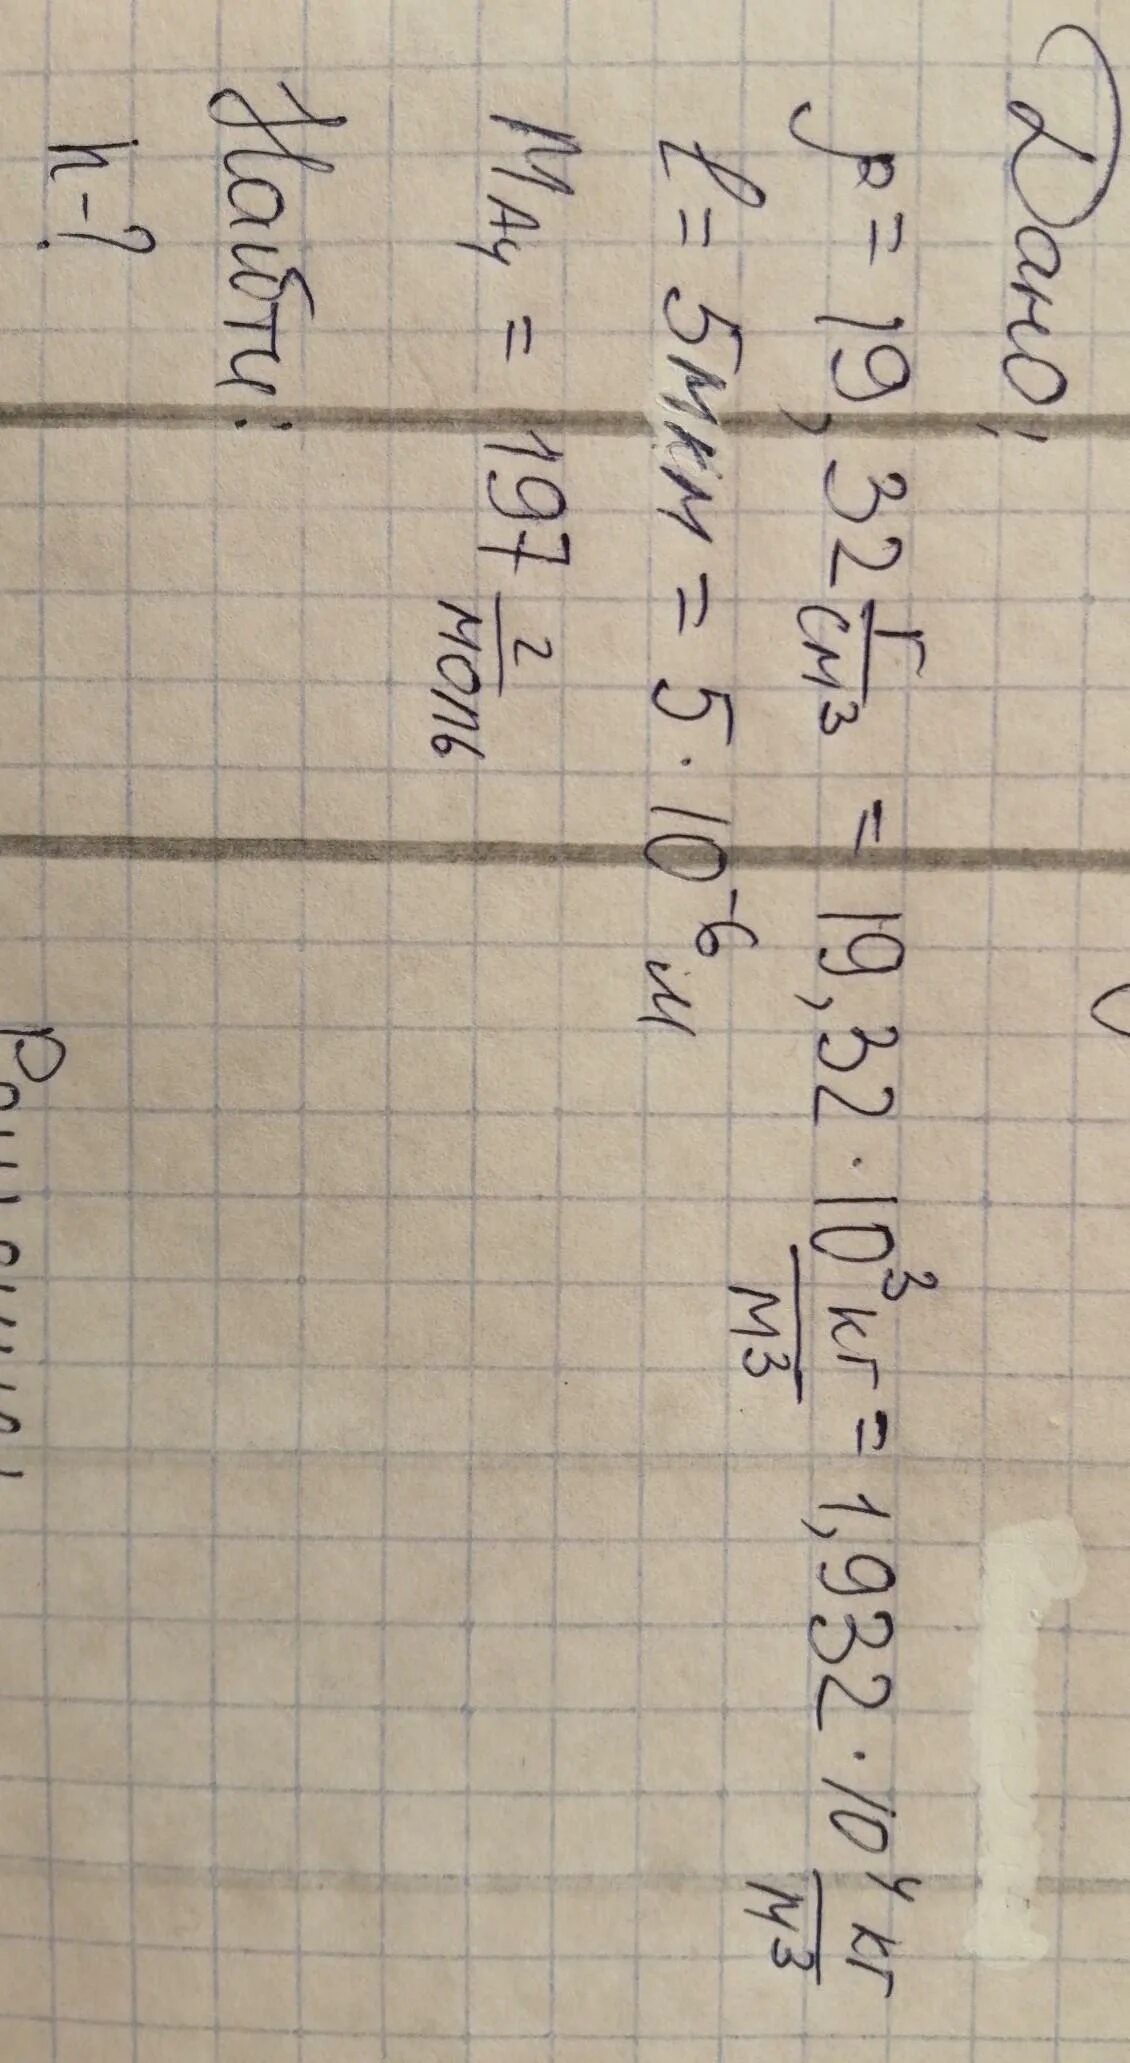 Дано:
ρ = 19,32 г/см³ = 19,32 · 10³ кг/м³ = 1,932 · 10⁴ кг/м³
ℓ = 5мкм = 5 · 10⁻⁶ м
M_Au = 197 г/моль
Найти:
n - ?
Решение: